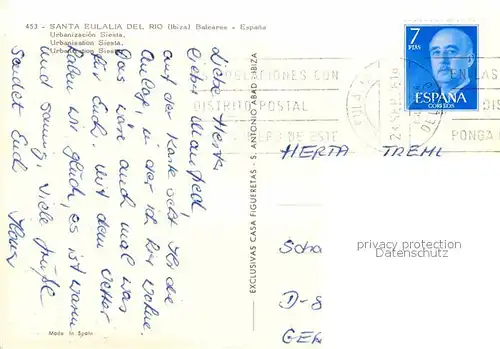 453 - SANTA EULALIA DEL RIO (Ibiza) Baleares - España
Urbanización Siesta.
Urbanisation Siesta.
Urbanisation Siesta.
Liebe Herta,
lieber Manfred!
auf der Karte seht Ihr die
Anlage, in der ich hier wohne.
Das wäre auch mal was
für Euch. Mit dem Wetter
haben wir Glück, es ist warm
und sonnig. Viele Grüße
sendet Euch
EXCLUSIVAS CASA FIGUERETAS - S. ANTONIO ABAD IBIZA
Made in Spain
7
PTAS
ESPAÑA
CORREOS
CON
DISTRITO POSTAL
DE ESTE
EN LAS
DIS
PONGA
EULALIA
DEL
HERTA TREML
Scha
D-8
GE
privacy protection
Datenschutz